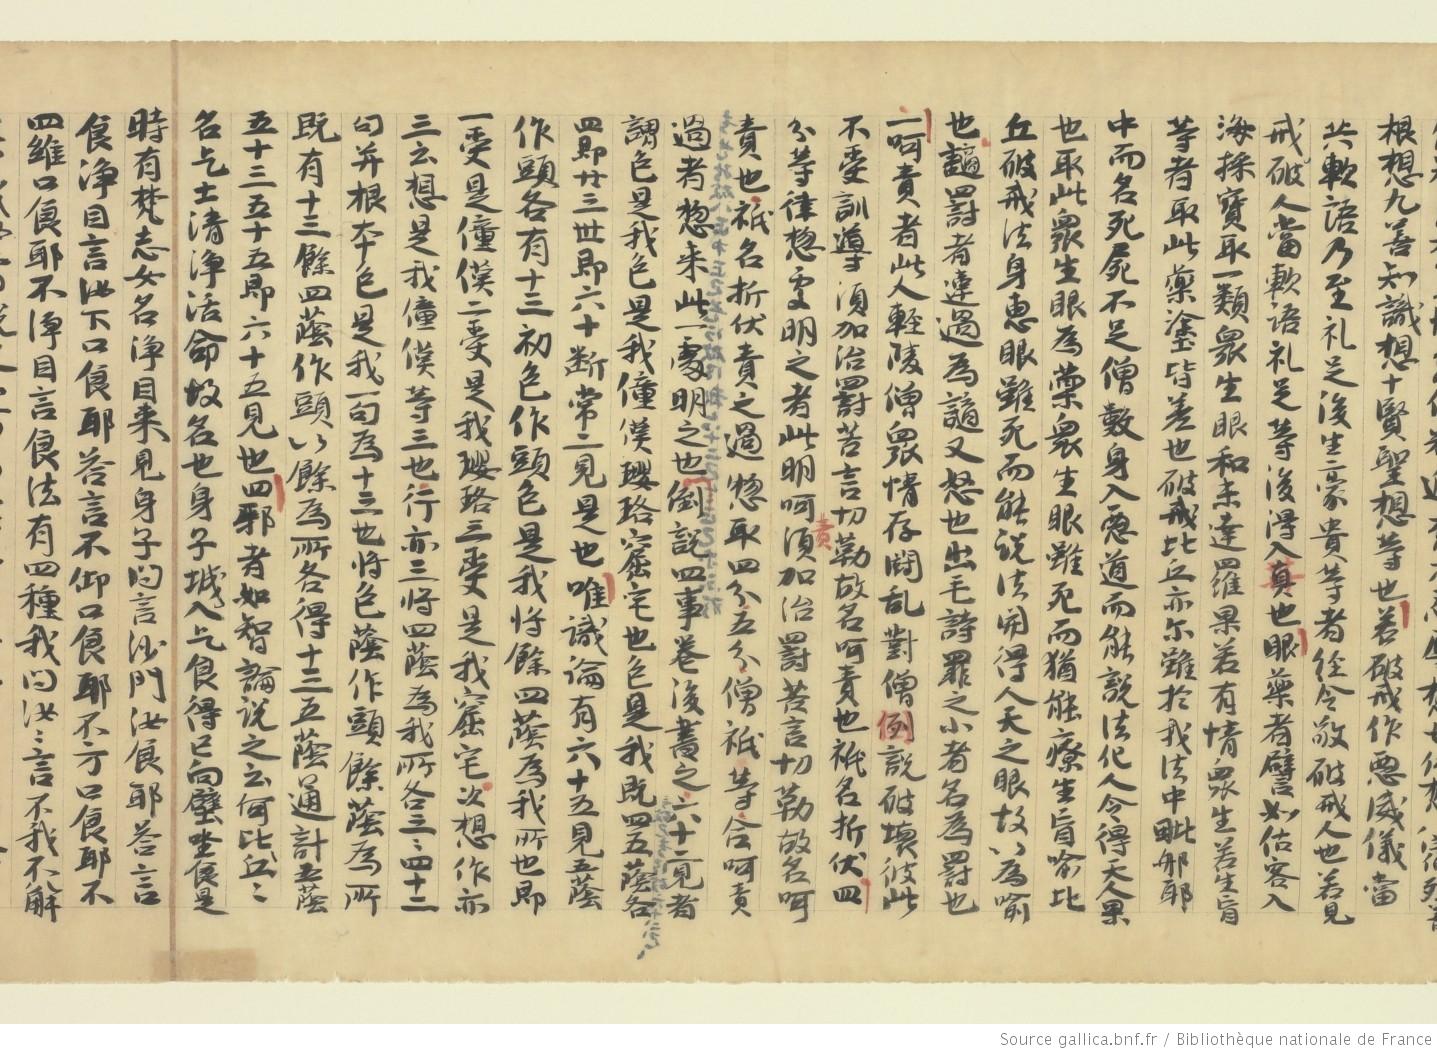 根想九善知識想十賢聖想等也若破戒作惡威儀當
共軟語乃至礼足後生豪貴等者經令敬破戒人也若見
戒破人當軟語礼足等後得入真也眼藥者譬如估客入
海採寶取一類衆生眼和未達羅果若有情衆生若生盲
等者取此藥塗皆差也破戒比丘亦尓雖於我法中毗那耶
中而名死屍不足僧數身入惡道而能說法化人令得天人果
也取此衆生眼為藥衆生眼雖死而猶能療生盲喻比
丘破戒法身惠眼雖死而能說法開得人天之眼故以為喻
也謫罸者連過為謫又怒也出毛詩罪之小者名為罸也
一呵責者此人輕陵僧衆情存鬪乱對僧倒說破壞彼此
不受訓導須加治罸苦言切勒故名呵責也祇名折伏四
分等律惣處明之者此明呵責須加治罸苦言切勒故名呵
責也祇名折伏責之過惣取四分五分僧祇等合呵責
過者惣来此一處明之也倒說四事卷後書之六十二見者
謂色是我色是我僮僕瓔珞窟宅也色是我既四五蔭各
四即廿三世即六十斷常二見是也唯識論有六十五見五蔭
作頭各有十三初色作頭色是我將餘四蔭為我所也即
一受是僮僕二受是我瓔珞三受是我窟宅次想作亦
三云想是我僮僕等三也行亦三將四蔭為我所各三三四十二
句并根本色是我一句為十三也將色蔭作頭餘蔭為所
既有十三餘四蔭作頭以餘為所各得十三五蔭通計五蔭
五十三五十五即六十五見也四邪者如智論說之云何比丘〻
名乞士清淨活命故名也身子城入乞食得已向壁坐食是
時有梵志女名淨目来見身子問言沙門汝食耶荅言
食淨目言汝下口食耶荅言不仰口食耶不方口食耶不
四維口食耶不淨目言食法有四種我問汝〻言不我不解
Source gallica.bnf.fr / Bibliothèque nationale de France